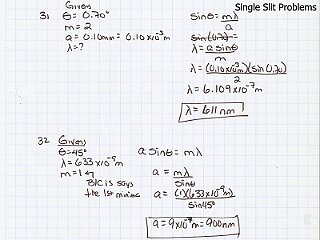 Single Slit Problems
31 Given
θ = 0.70°
m = 2
a = 0.10mm = 0.10×10⁻³m
λ = ?
sinθ = mλ/a
sin(0.70) =
λ = a sinθ/m
λ = (0.10×10⁻³m)(sin 0.70)/2
λ = 6.109×10⁻⁷m
λ = 611 nm
32 Given
θ = 45°
λ = 633×10⁻⁹m
m = 1
B/C is says
the 1st minima
a sinθ = mλ
a = mλ/sinθ
a = (1)(633×10⁻⁹m)/sin45°
a = 9×10⁻⁷m = 900nm